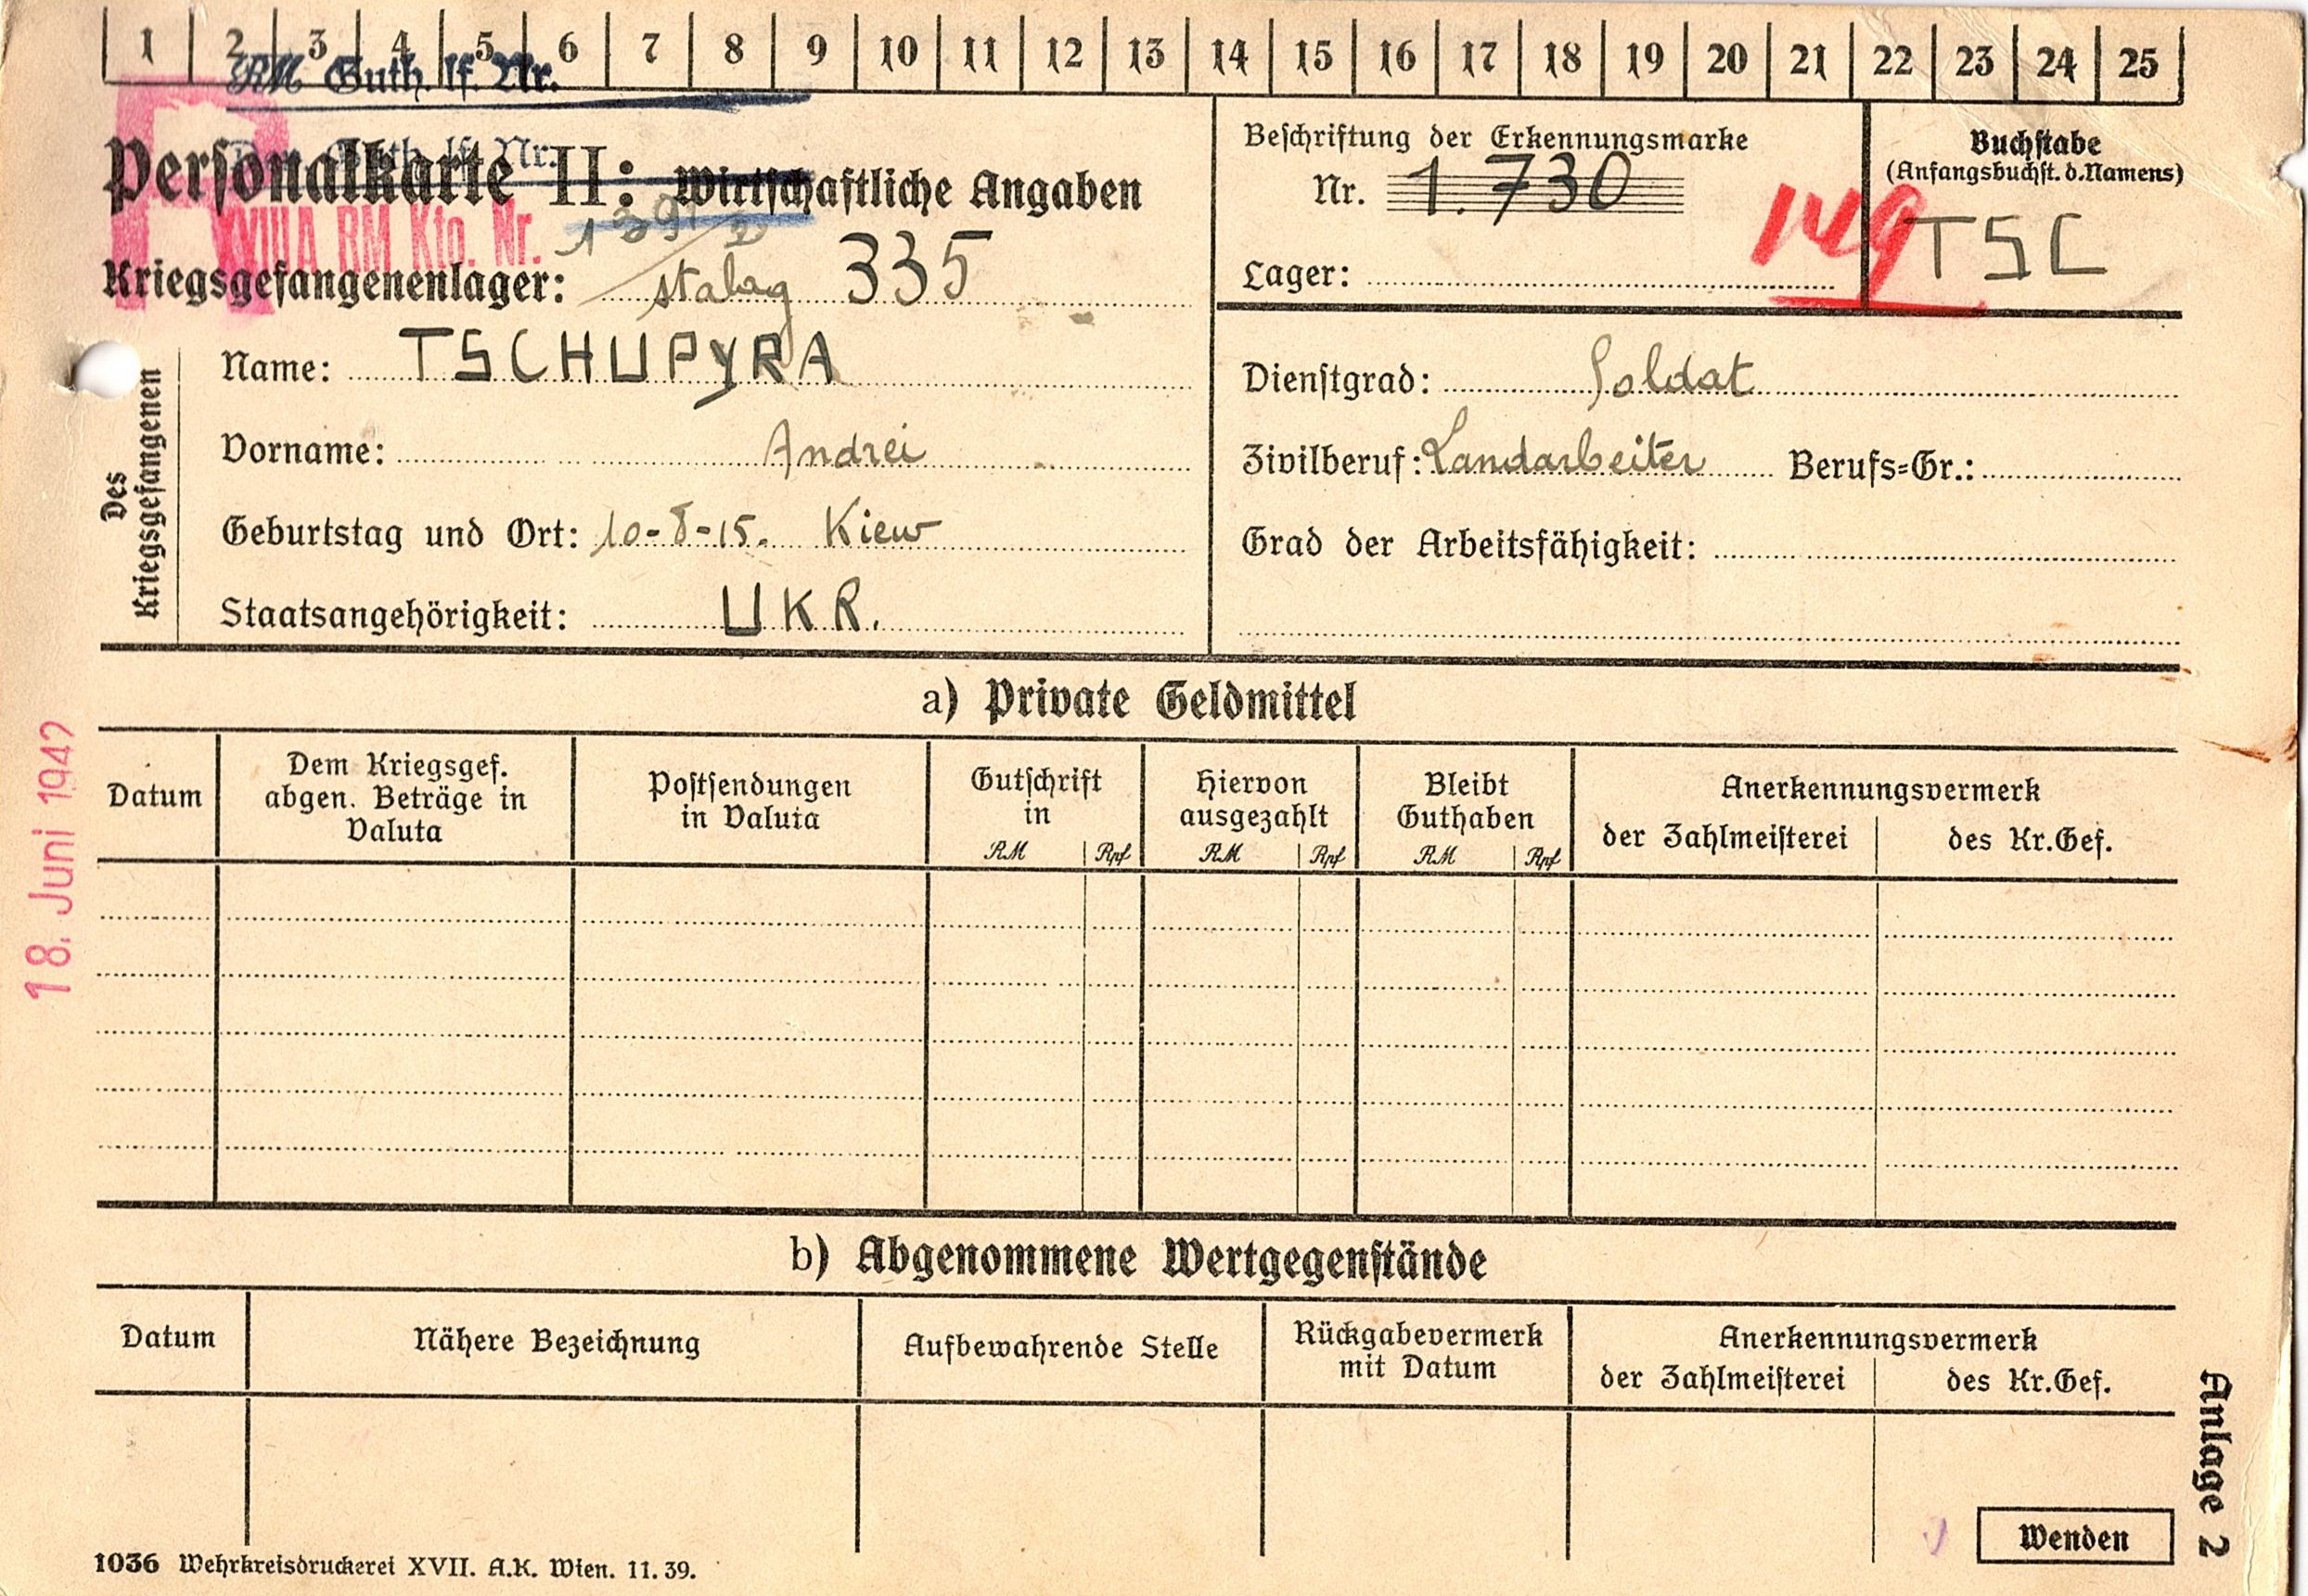 1 2 3 4 5 6 7 8 9 10 11 12 13 14 15 16 17 18 19 20 21 22 23 24 25
RM Guth. lf. Nr.
RM Guth. lf. Nr.
Personalkarte II: Wirtschaftliche Angaben
XVII A RM Kto. Nr.
Kriegsgefangenenlager: Stalag 335
Beschriftung der Erkennungsmarke
Nr. 1.730
Lager:
149
Buchstabe
(Anfangsbuchst. d. Namens)
TSC
Des Kriegsgefangenen
Name: TSCHUPYRA
Vorname: Andrei
Geburtstag und Ort: 10-8-15. Kiew
Staatsangehörigkeit: UKR.
Dienstgrad: Soldat
Zivilberuf: Landarbeiter Berufs=Gr.:
Grad der Arbeitsfähigkeit:
18. Juni 1942
a) Private Geldmittel
Datum
Dem Kriegsgef.
abgen. Beträge in
Valuta
Postsendungen
in Valuta
Gutschrift
in
RM Rpf
Hiervon
ausgezahlt
RM Rpf
Bleibt
Guthaben
RM Rpf
Anerkennungsvermerk
der Zahlmeisterei des Kr.Gef.
b) Abgenommene Wertgegenstände
Datum
Nähere Bezeichnung
Aufbewahrende Stelle
Rückgabevermerk
mit Datum
Anerkennungsvermerk
der Zahlmeisterei des Kr.Gef.
Anlage 2
Wenden
1036 Wehrkreisdruckerei XVII. A.K. Wien. 11.39.